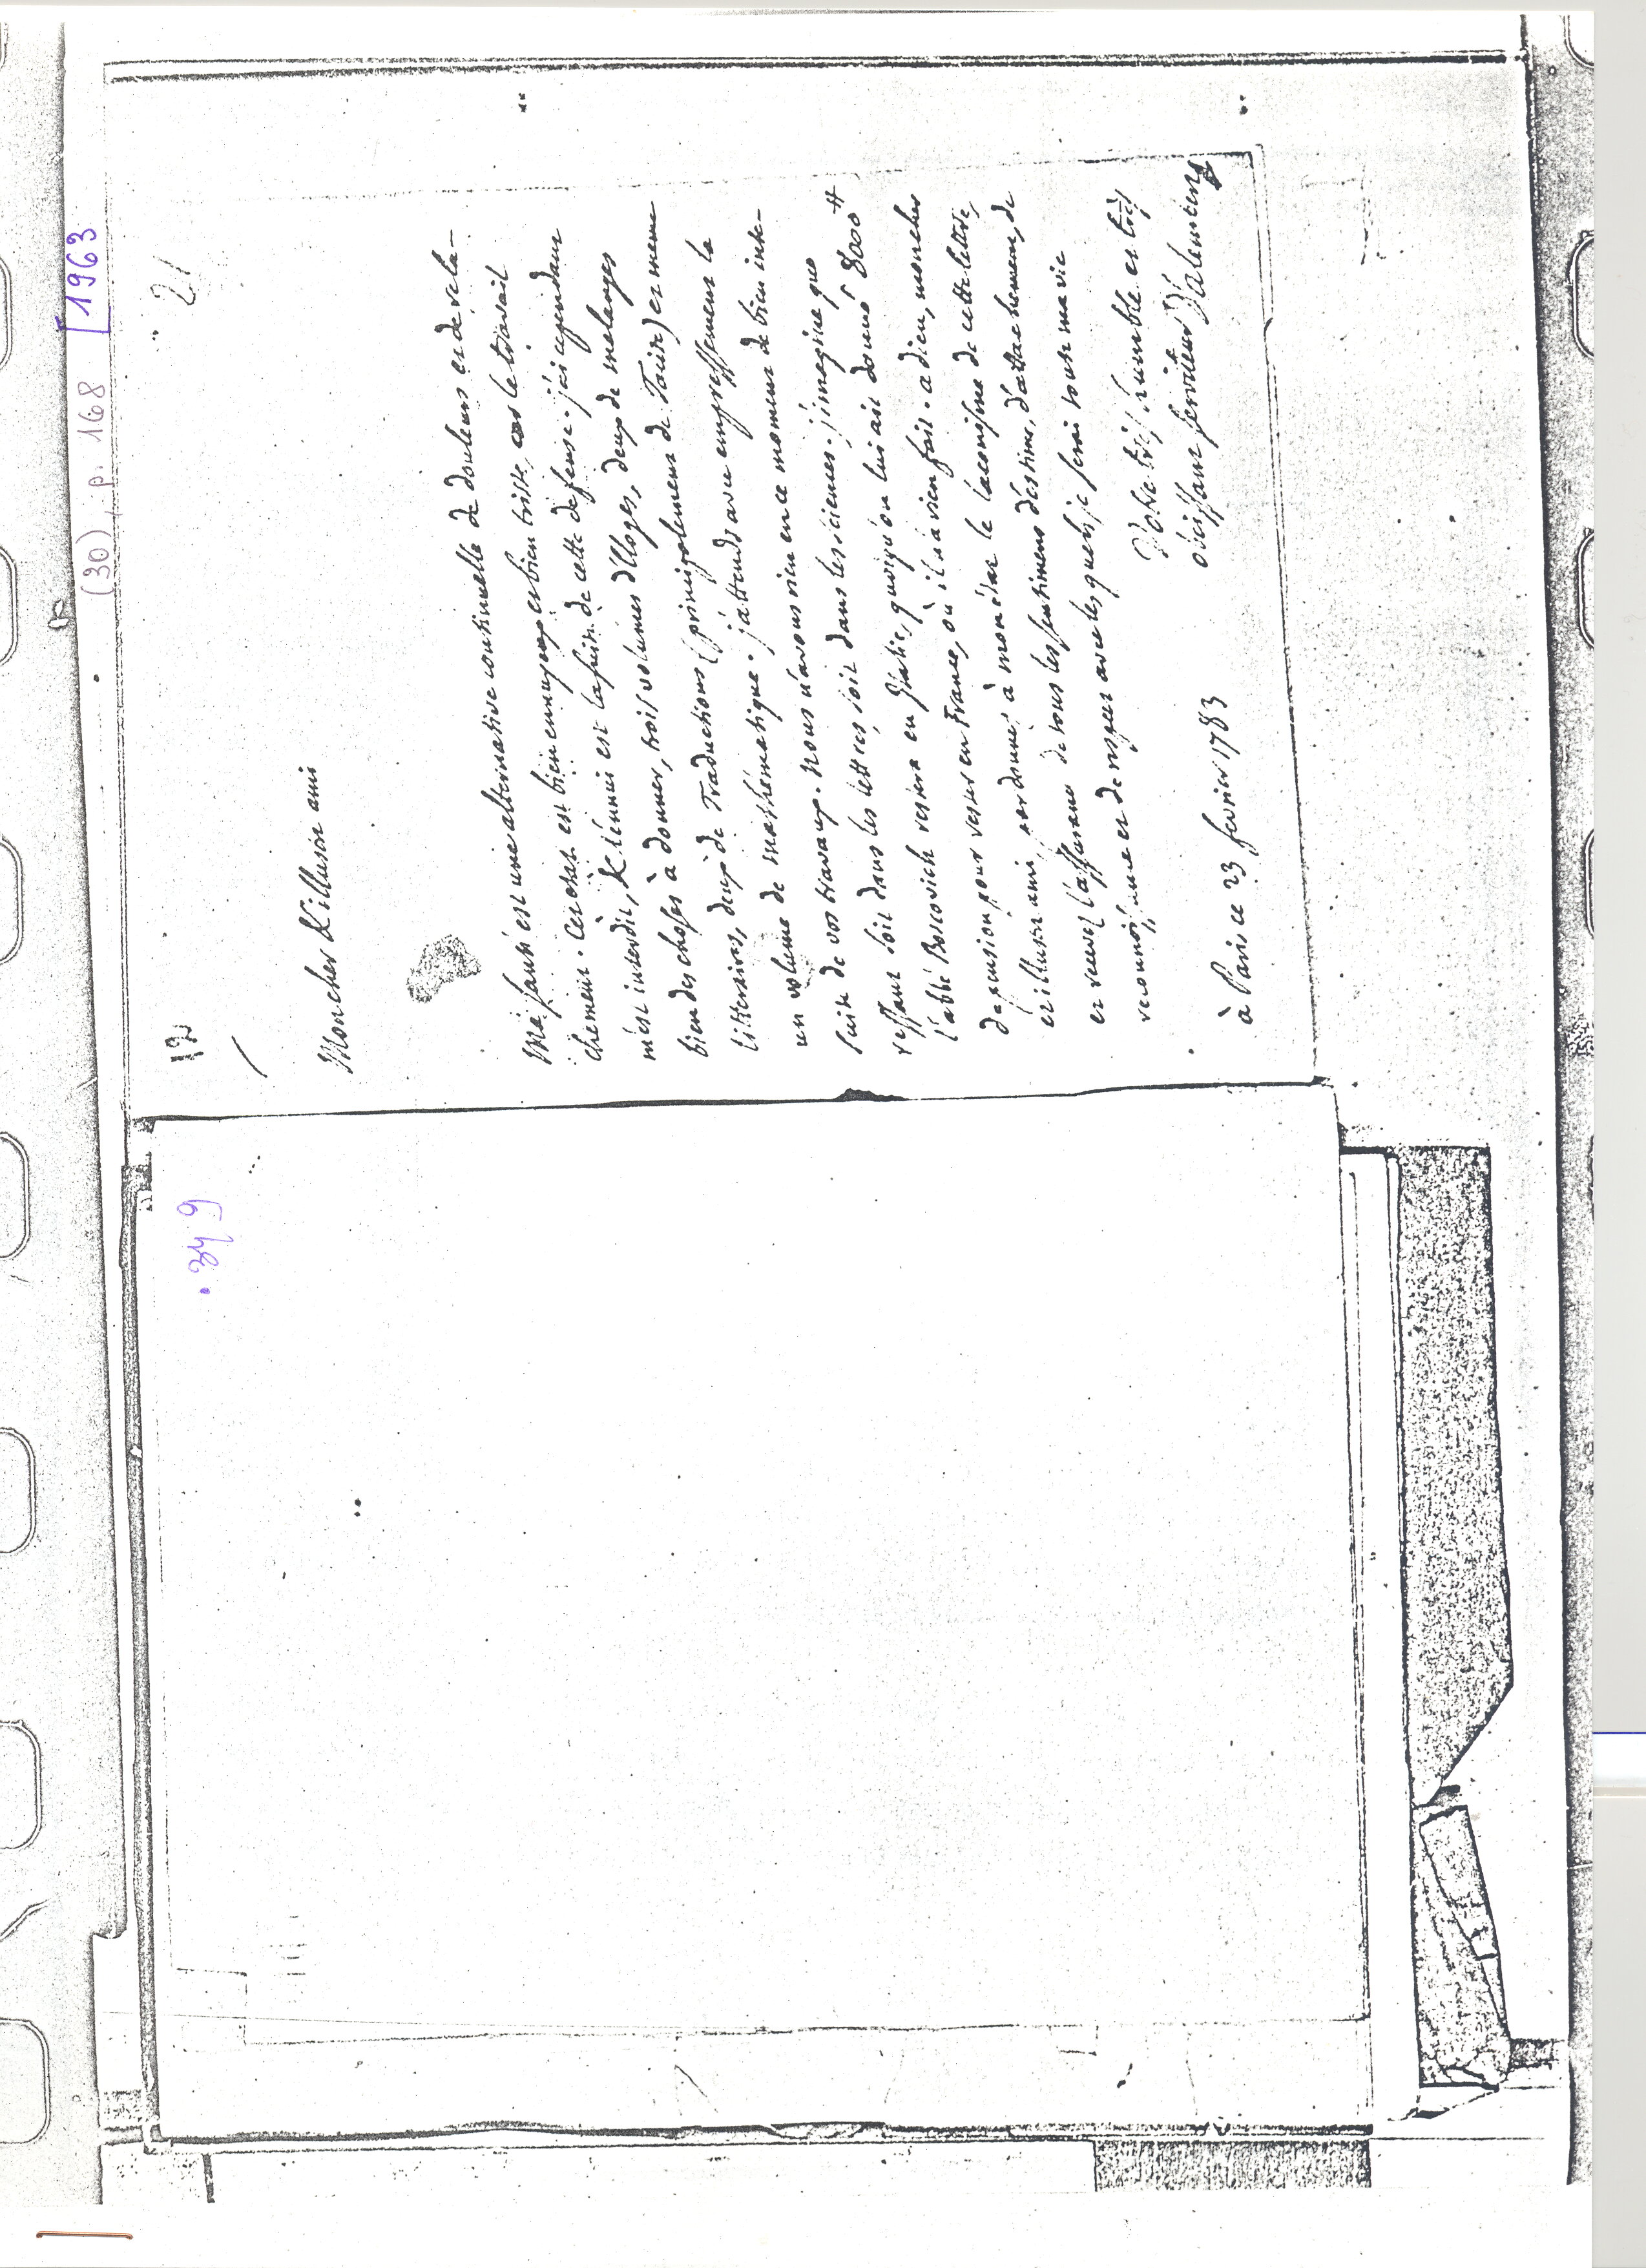 (30), p. 168 [1963
12
21
Mon cher & illustre ami
Ma santé est une alternative continuelle de douleurs et de rela-
chement. Cet etat est bien ennuyeux et bien triste, car le travail
m'est interdit, & l'ennui est la suite de cette defense. j'ai cependant
bien des choses à donner, trois volumes d'Eloges, deux de melanges
litteraires, deux de Traductions (principalement de Tacite) et meme
un volume de mathématique. j'attends avec empressement la
suite de vos travaux. nous n'avons rien en ce moment de bien inte-
ressant soit dans les lettres, soit dans les sciences. j'imagine que
l'abbé Boscovich restera en Italie, quoiqu'on lui ait donné 8000 #
de pension pour rester en France, où il n'a rien fait. adieu, mon cher
et illustre ami, pardonnez à mon état le laconisme de cette lettre,
et recevez l'assurance de tous les sentimens d'estime, d'attachement, de
reconnoissance et de respect avec lesquels je serai toute ma vie
Votre très humble et très
obeissant serviteur D'alembert
à Paris ce 23 fevrier 1783
349